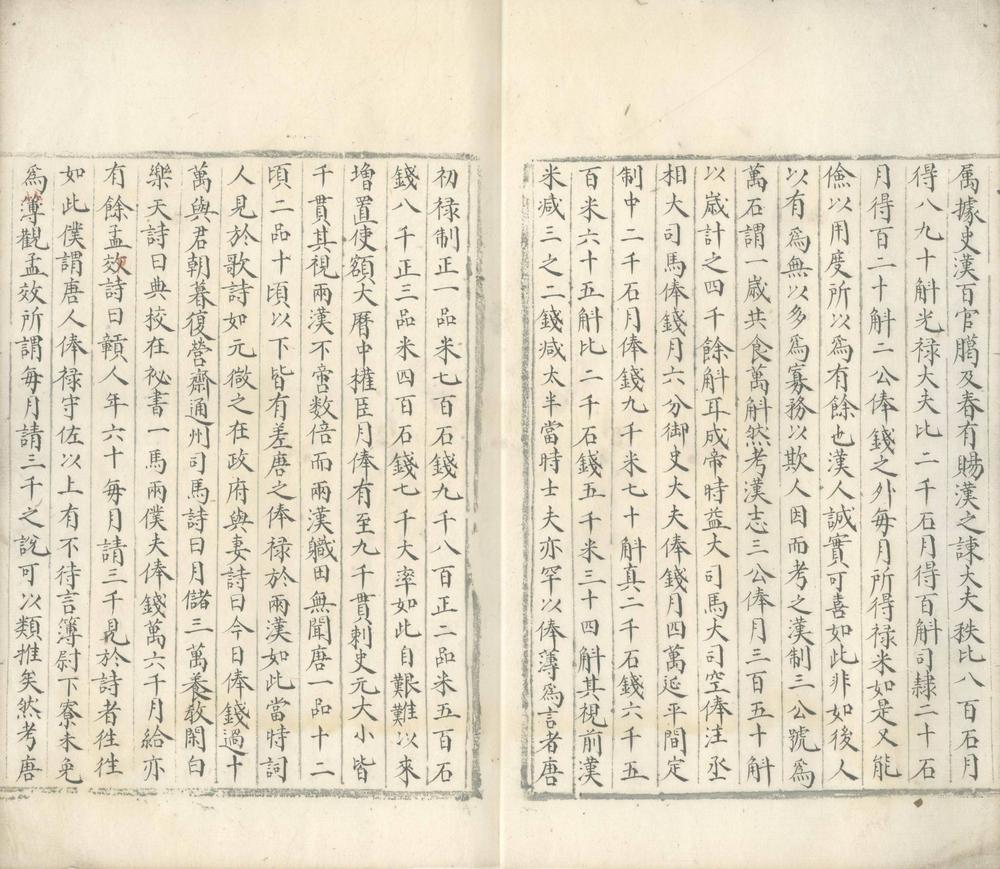 属據史漢百官臈及春有賜漢之諌大夫秩比八百石月
得八九十斛光禄大夫比二千石月得百斛司隷二千石
月得百二十斛二公俸錢之外每月所得禄米如是又能
儉以用度所以爲有餘也漢人誠實可喜如此非如後人
以有爲無以多爲寡務以欺人因而考之漢制三公號爲
萬石謂一歳共食萬斛然考漢志三公俸月三百五十斛
以歳計之四千餘斛耳成帝時益大司馬大司空俸注丞
相大司馬俸錢月六分御史大夫俸錢月四萬延平間定
制中二千石月俸錢九千米七十斛真二千石錢六千五
百米六十五斛比二千石錢五千米三十四斛其視前漢
米减三之二錢减太半當時士夫亦罕以俸薄爲言者唐
初禄制正一品米七百石錢九千八百正二品米五百石
錢八千正三品米四百石錢七千大率如此自艱難以來
增置使額大曆中權臣月俸有至九千貫刺史元大小皆
千貫其視兩漢不啻数倍而兩漢軄田無聞唐一品十二
頃二品十頃以下皆有差唐之俸禄於兩漢如此當時詞
人見於歌詩如元微之在政府與妻詩曰今日俸錢過十
萬與君朝暮復營齋通州司馬詩曰月儲三萬養教閑白
樂天詩曰典校在祕書一馬兩僕夫俸錢萬六千月給亦
有餘孟效詩曰顇人年六十每月請三千見於詩者徃徃
如此僕謂唐人俸禄守佐以上有不待言簿尉下寮未免
爲簿觀孟效所謂每月請三千之說可以類推矣然考唐